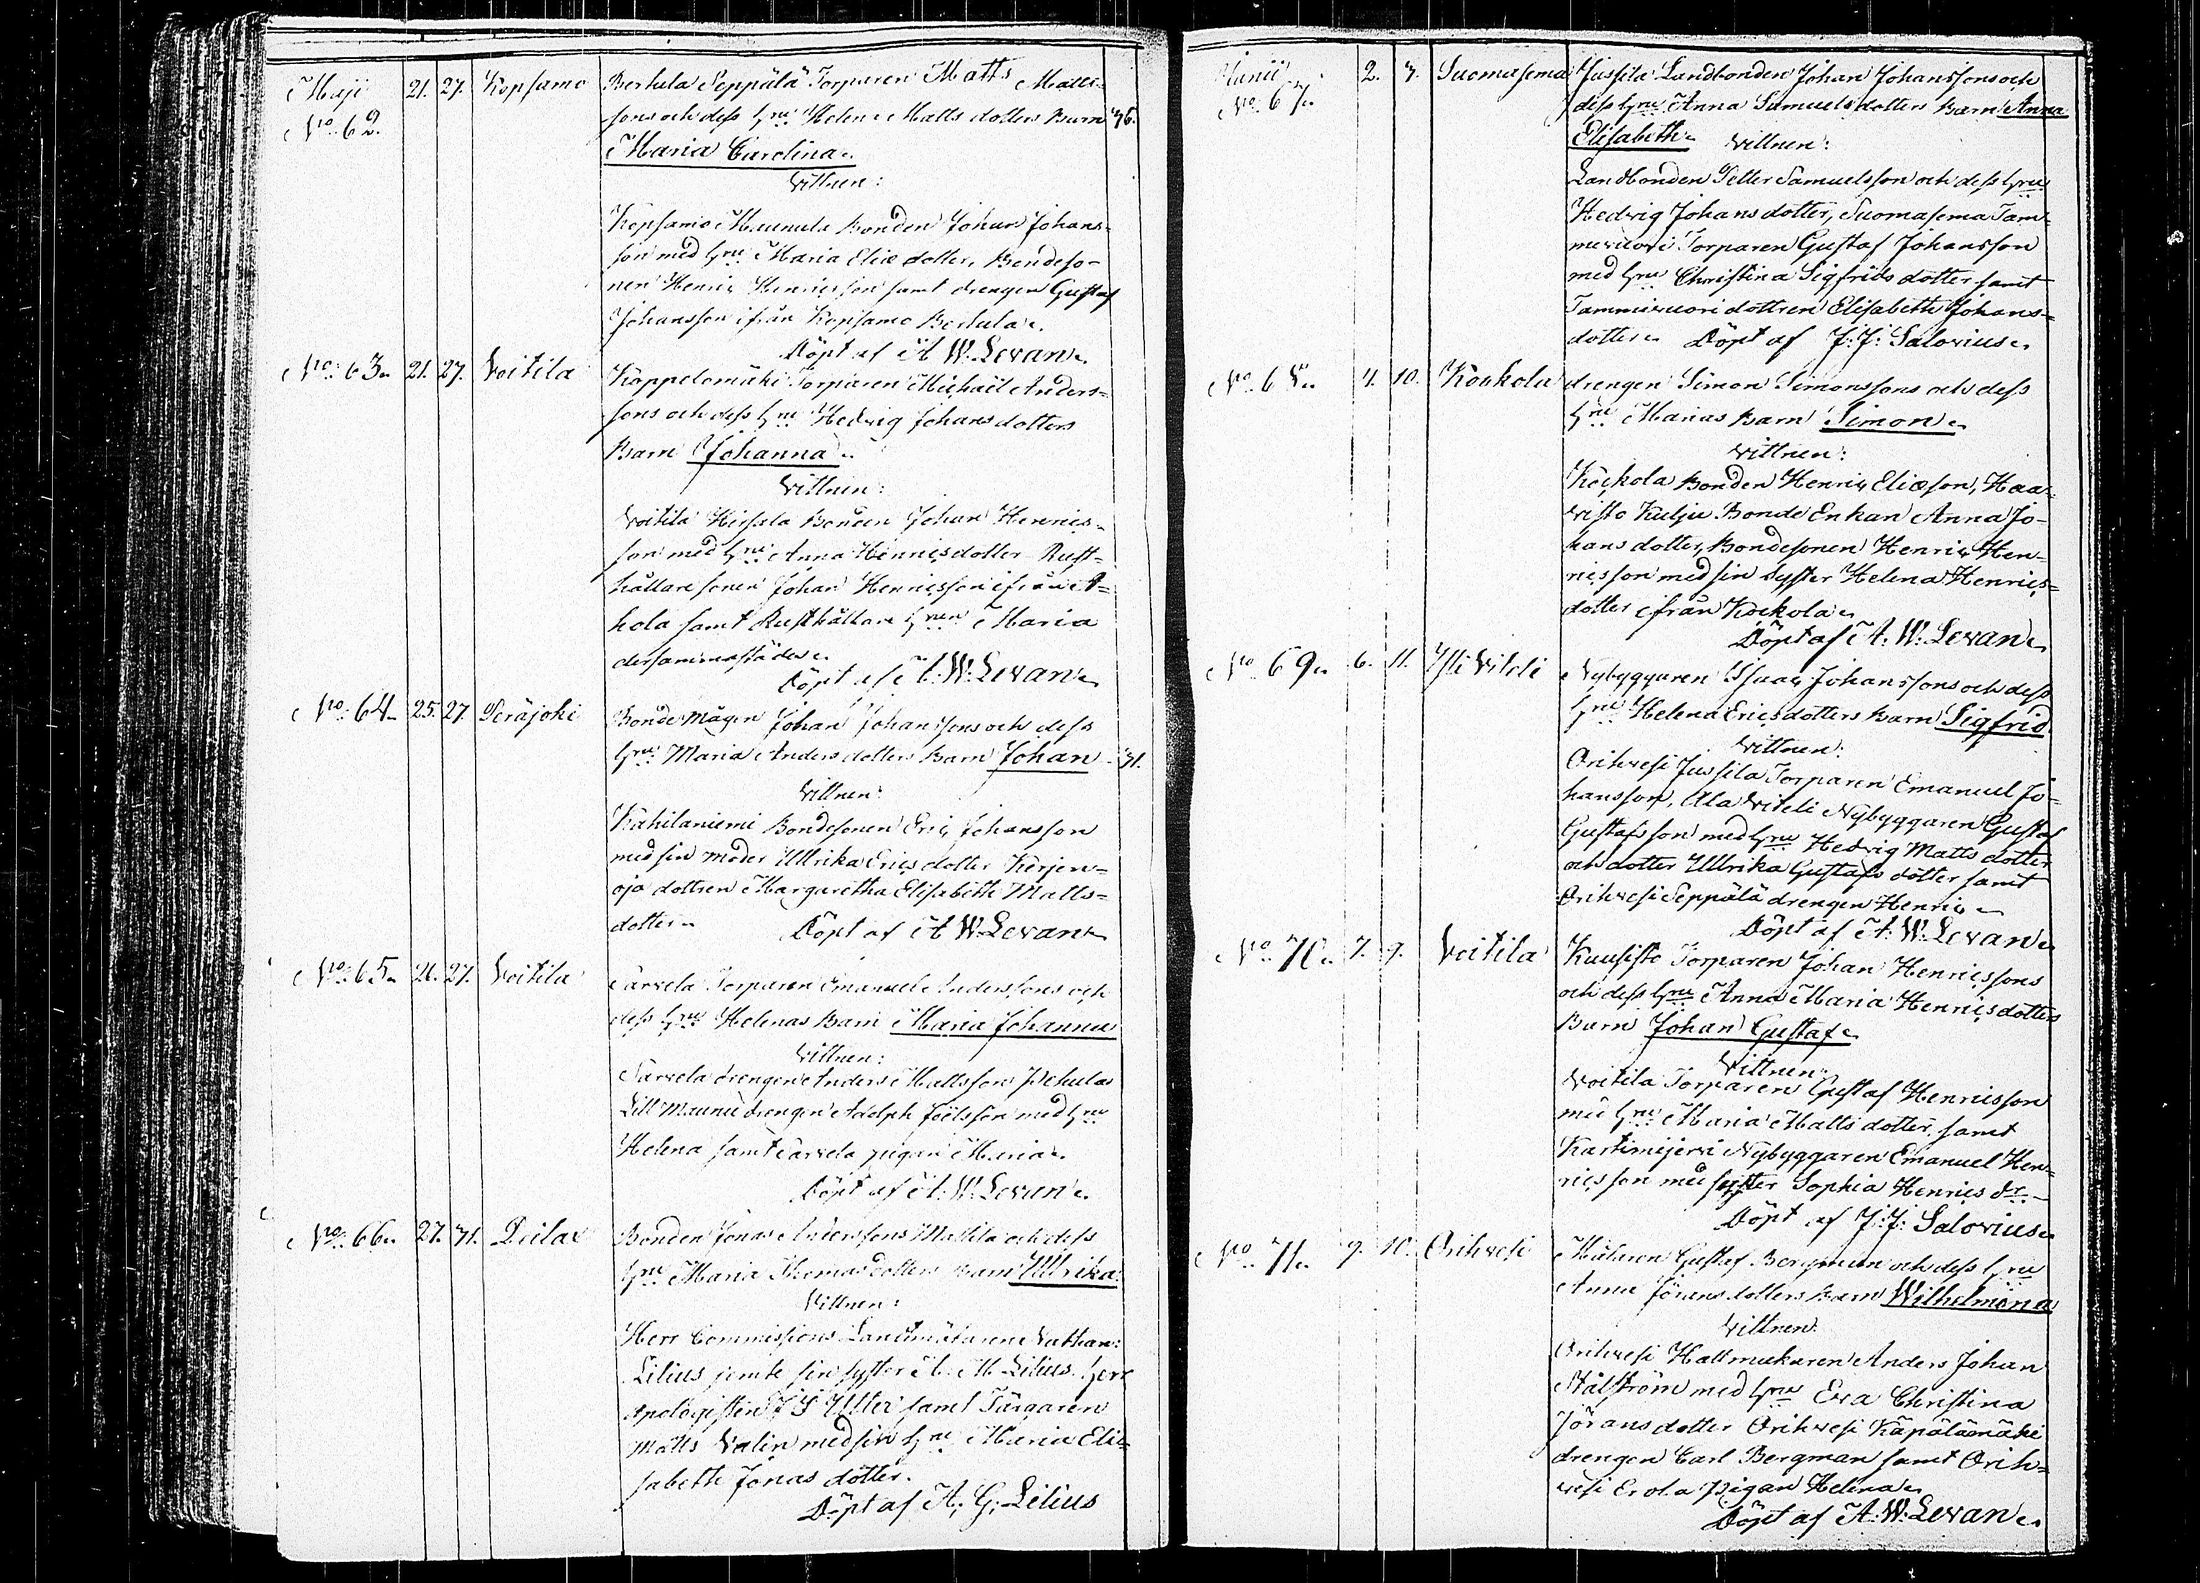 Maji 21. 27. Kopsamo Bertula Seppälä Torparen Matts Matts-
No. 62. sons och dess Hru Helena Matts dotters Barn 76.
Maria Carolina.
Vittnen:
Kopsamo Maunula Bonden Johan Johans-
son med Hru Maria Eliæ dotter, Bondeso-
nen Henric Henricsson samt drengen Gustaf
Johansson ifrån Kopsamo Bertula.
Döpt af A W. Levan.
No. 63. 21. 27. Voitila Koppelomäki Torparen Michaël Anders-
sons och dess Hru Hedvig Johans dotters
Barn Johanna.
Vittnen:
Voitila Hirsala Bonden Johan Henrics-
son med Hru Anna Henricsdotter Rust-
hållare sonen Johan Henricsson ifrån A-
hola samt Rusthållare Hrun Maria
dersammastädes.
Döpt af A. W. Levan.
No. 64. 25. 27. Peräjoki Bonde mågen Johan Johanssons och dess
Hru Maria Anders dotters Barn Johan 71.
Vittnen:
Kahilaniemi Bondesonen Eric Johansson
med sin moder Ullrika Erics dotter Kerjen-
oja dottren Margaretha Elisabeth Matts-
dotter. Döpt af A W. Levan.
No. 65. 26. 27. Voitila Sarvela Torparen Emanuel Anderssons och
dess Hru Helenas Barn Maria Johanna
Vittnen:
Sarvela drengen Anders Mattsson
Lill Maunu drengen Adolph Joëlsson med Hru
Helena samt Sarvela pigan Maria.
Döpt af A. W. Levan.
No. 66. 27. 71. Bonden Jonas Anderssons Mattila och dess
Hru Maria Thomas dotters Barn Ullrika.
Vittnen:
Herr Commissions Landtmätaren Nathan:
Lilius jemte sin syster A. M. Lilius. Herr
Apologisten samt Färgaren
Matts Valin med sin Hru Maria Eli-
sabeth Jonas dotter.
Döpt af A. G. Lilius
Junii 2. 7. Suomasema Jussila Landbonden Johan Johanssons och
No. 67. dess Hru Anna Samuels dotters Barn Anna
Elisabeth. Vittnen:
Landbonden Petter Samuelsson och dess Hru
Hedvig Johans dotter, Suomasema Tam-
mivuori Torparen Gustaf Johansson
med Hru Christina Sigfrids dotter samt
Tammivuori dottren Elisabeth Johans-
dotter. Döpt af J: J: Salovius.
No. 68. 4. 10. Koukola drengen Simon Simonssons och dess
Hru Marias Barn Simon.
Vittnen:
Kockola Bonden Henric Eliæson, Haa-
visto Kulju Bonde Enkan Anna Jo-
hans dotter, Bondesonen Henric Hen-
ricsson med sin syster Helena Henrics-
dotter ifrån Kockola.
Döpt af A. W. Levan.
No. 69. 6. 11. Yli Vitili Nybyggaren Isaac Johanssons och dess
Hru Helena Ericsdotters Barn Sigfrid
Vittnen:
Orihvesi Jussila Torparen Emanuel Jo-
hansson, Ala Viteli Nybyggaren Gustaf
Gustafsson med Hru Hedvig Matts dotter
och dotter Ullrika Gustafs dotter samt
Orihvesi Seppälä drengen Henric.
Döpt af A. W. Levan.
No. 70. 7. 9. Voitila Kuusisto Torparen Johan Henricssons
och dess Hru Anna Maria Henricsdotters
Barn Johan Gustaf.
Vittnen:
Voitila Torparen Gustaf Henricsson
med Hru Maria Matts dotter, samt
Kartimijervi Nybyggaren Emanuel Hen-
ricsson med syster Sophia Henrics dr.
Döpt af J: J: Salovius.
No. 71. 9. 10. Orihvesi Målaren Gustaf Bergman och dess Hru
Anna Jörans dotters Barn Wilhelmina
Vittnen:
Orihvesi Hattmakaren Anders Johan
Stålström med Hru Eva Christina
Jörans dotter Orihvesi Käpälämäki
drengen Carl Bergman samt Orih-
vesi Erola Pigan Helena.
Döpt af A. W. Levan.